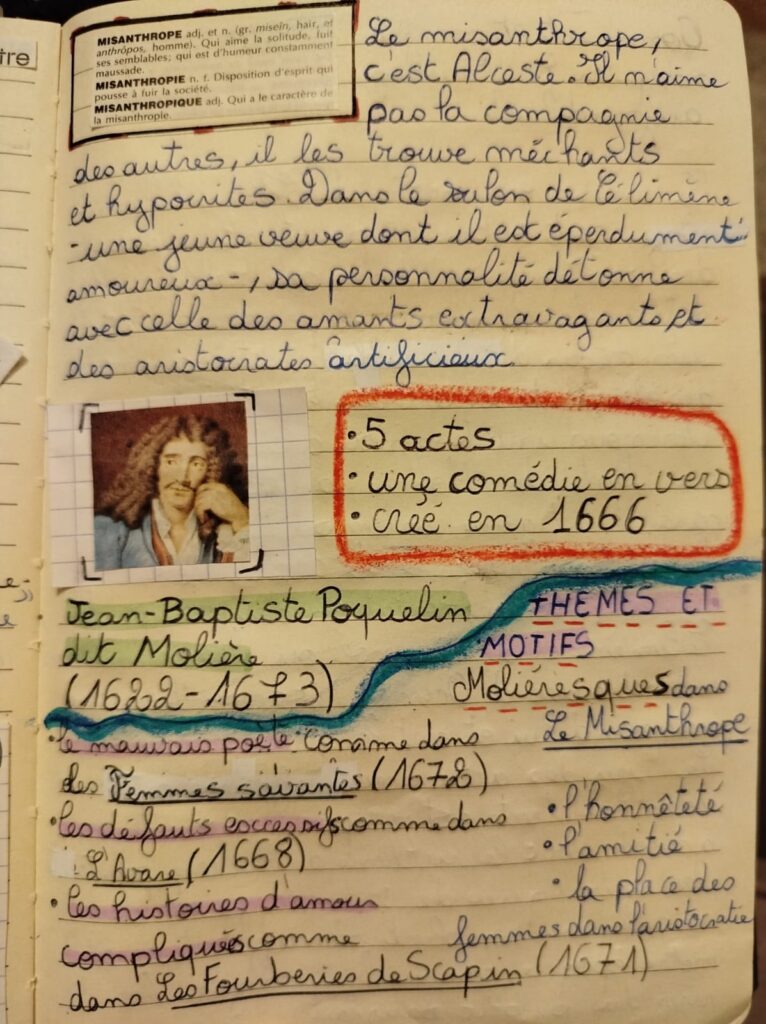 MISANTHROPE adj. et n. (gr. miseîn, haïr, et
anthrôpos, homme). Qui aime la solitude, fuit
ses semblables; qui est d'humeur constamment
maussade.
MISANTHROPIE n. f. Disposition d'esprit qui
pousse à fuir la société.
MISANTHROPIQUE adj. Qui a le caractère de
la misanthropie.
Le misanthrope,
c'est Alceste. Il n'aime
pas la compagnie
des autres, il les trouve méchants
et hypocrites. Dans le salon de Célimène
-une jeune veuve dont il est éperdument
amoureux-, sa personnalité détonne
avec celle des amants extravagants et
des aristocrates artificieux.
• 5 actes
• une comédie en vers
• créé en 1666
Jean-Baptiste Poquelin
dit Molière
(1622-1673)
THEMES ET
MOTIFS
Moliéresques dans
Le Misanthrope
• le mauvais poète comme dans
les Femmes savantes (1672)
• les défauts excessifs comme dans
L'Avare (1668)
• les histoires d'amour
compliqués comme
dans Les Fourberies de Scapin (1671)
• l'honnêteté
• l'amitié
• la place des
femmes dans l'aristocratie
tre